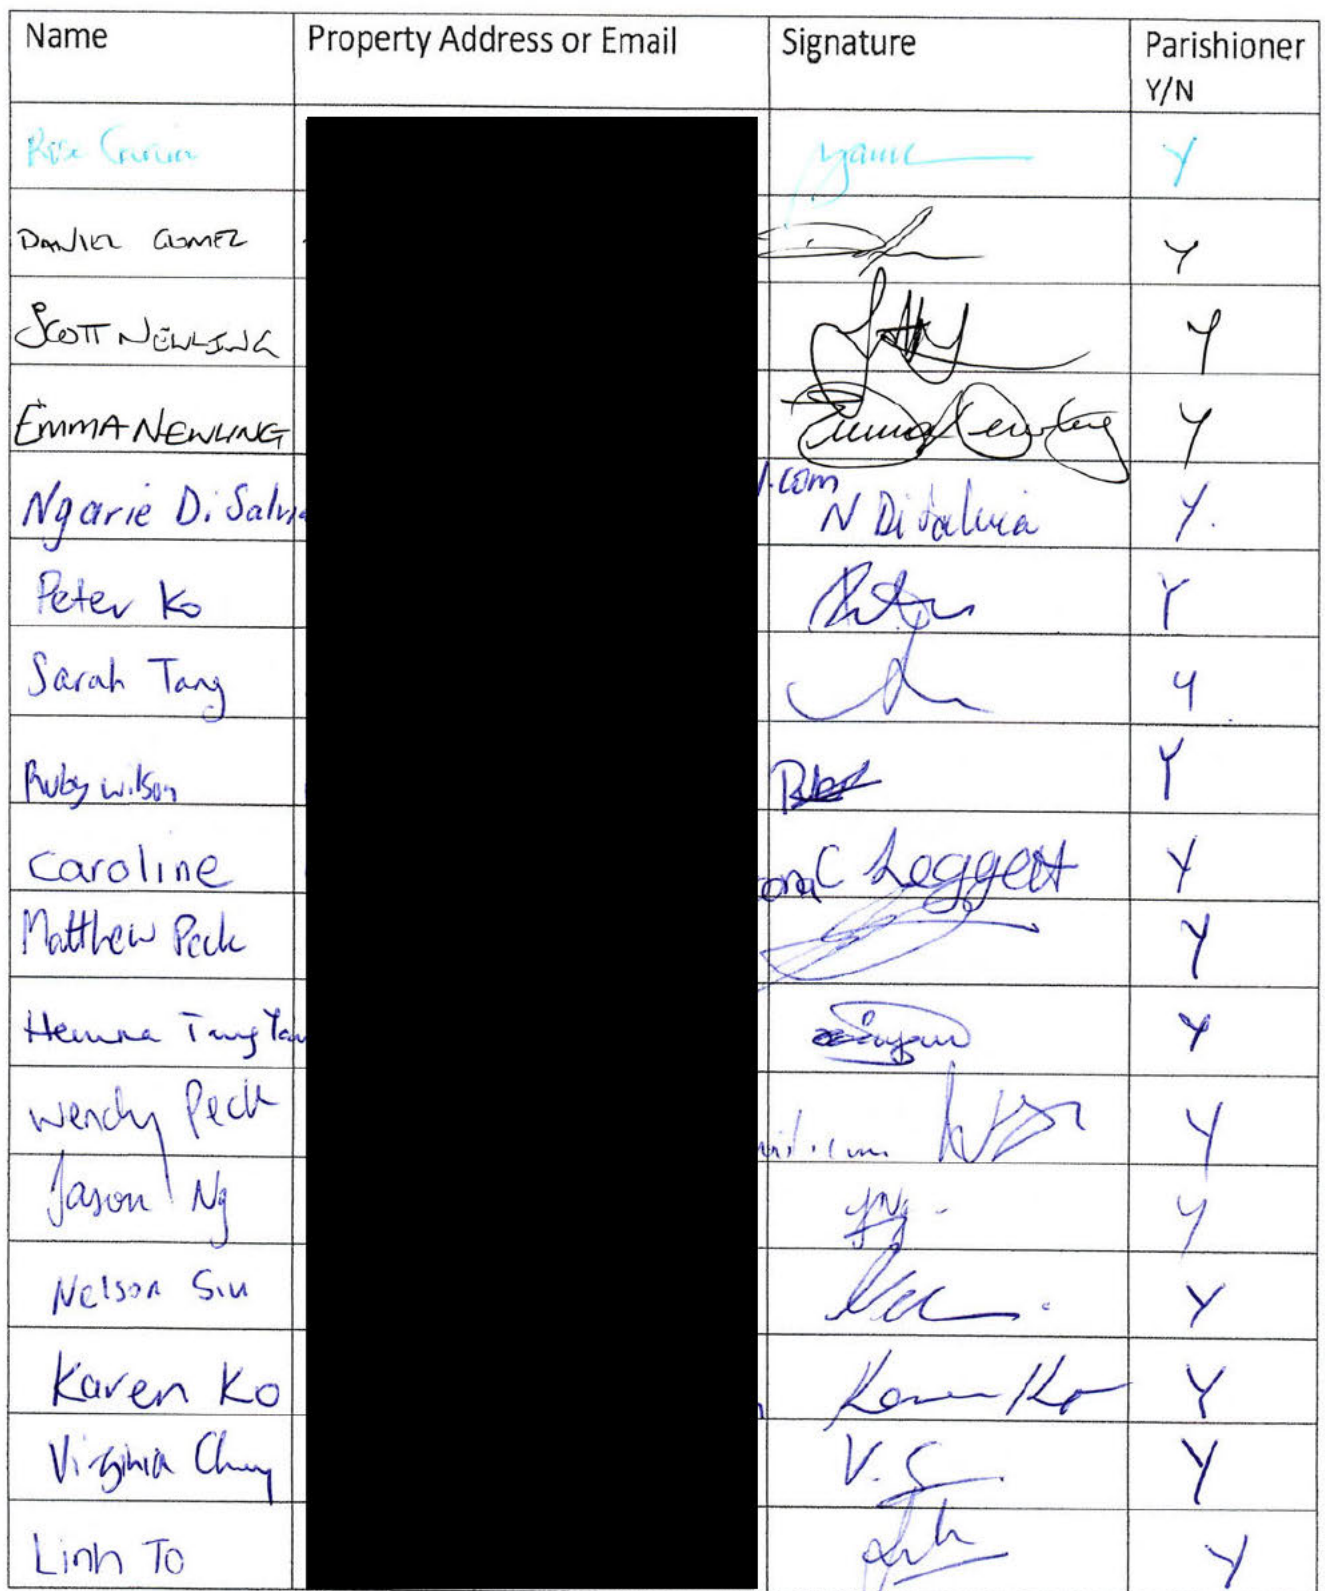 Name Property Address or Email Signature Parishioner
Y/N
Y
DANIEL GOMEZ Y
SCOTT NEWLING Y
EMMA NEWLING Emma Newling Y
.com
Ngarie Di Salvia N Di Salvia Y.
Peter Ko Y
Sarah Tang Y
Ruby Wilson Y
Caroline C Leggett Y
Matthew Peck Y
Tang Y
Wendy Peck Y
Jason Ng Y
Nelson Siu Y
Karen Ko Karen Ko Y
Virginia V. Y
Linh To Y